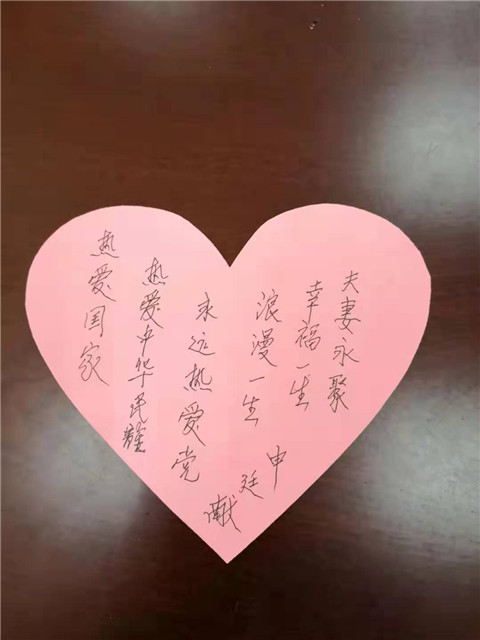 夫妻永聚
幸福一生
浪漫一生
永远热爱党
热爱中华民族
热爱国家
申廷